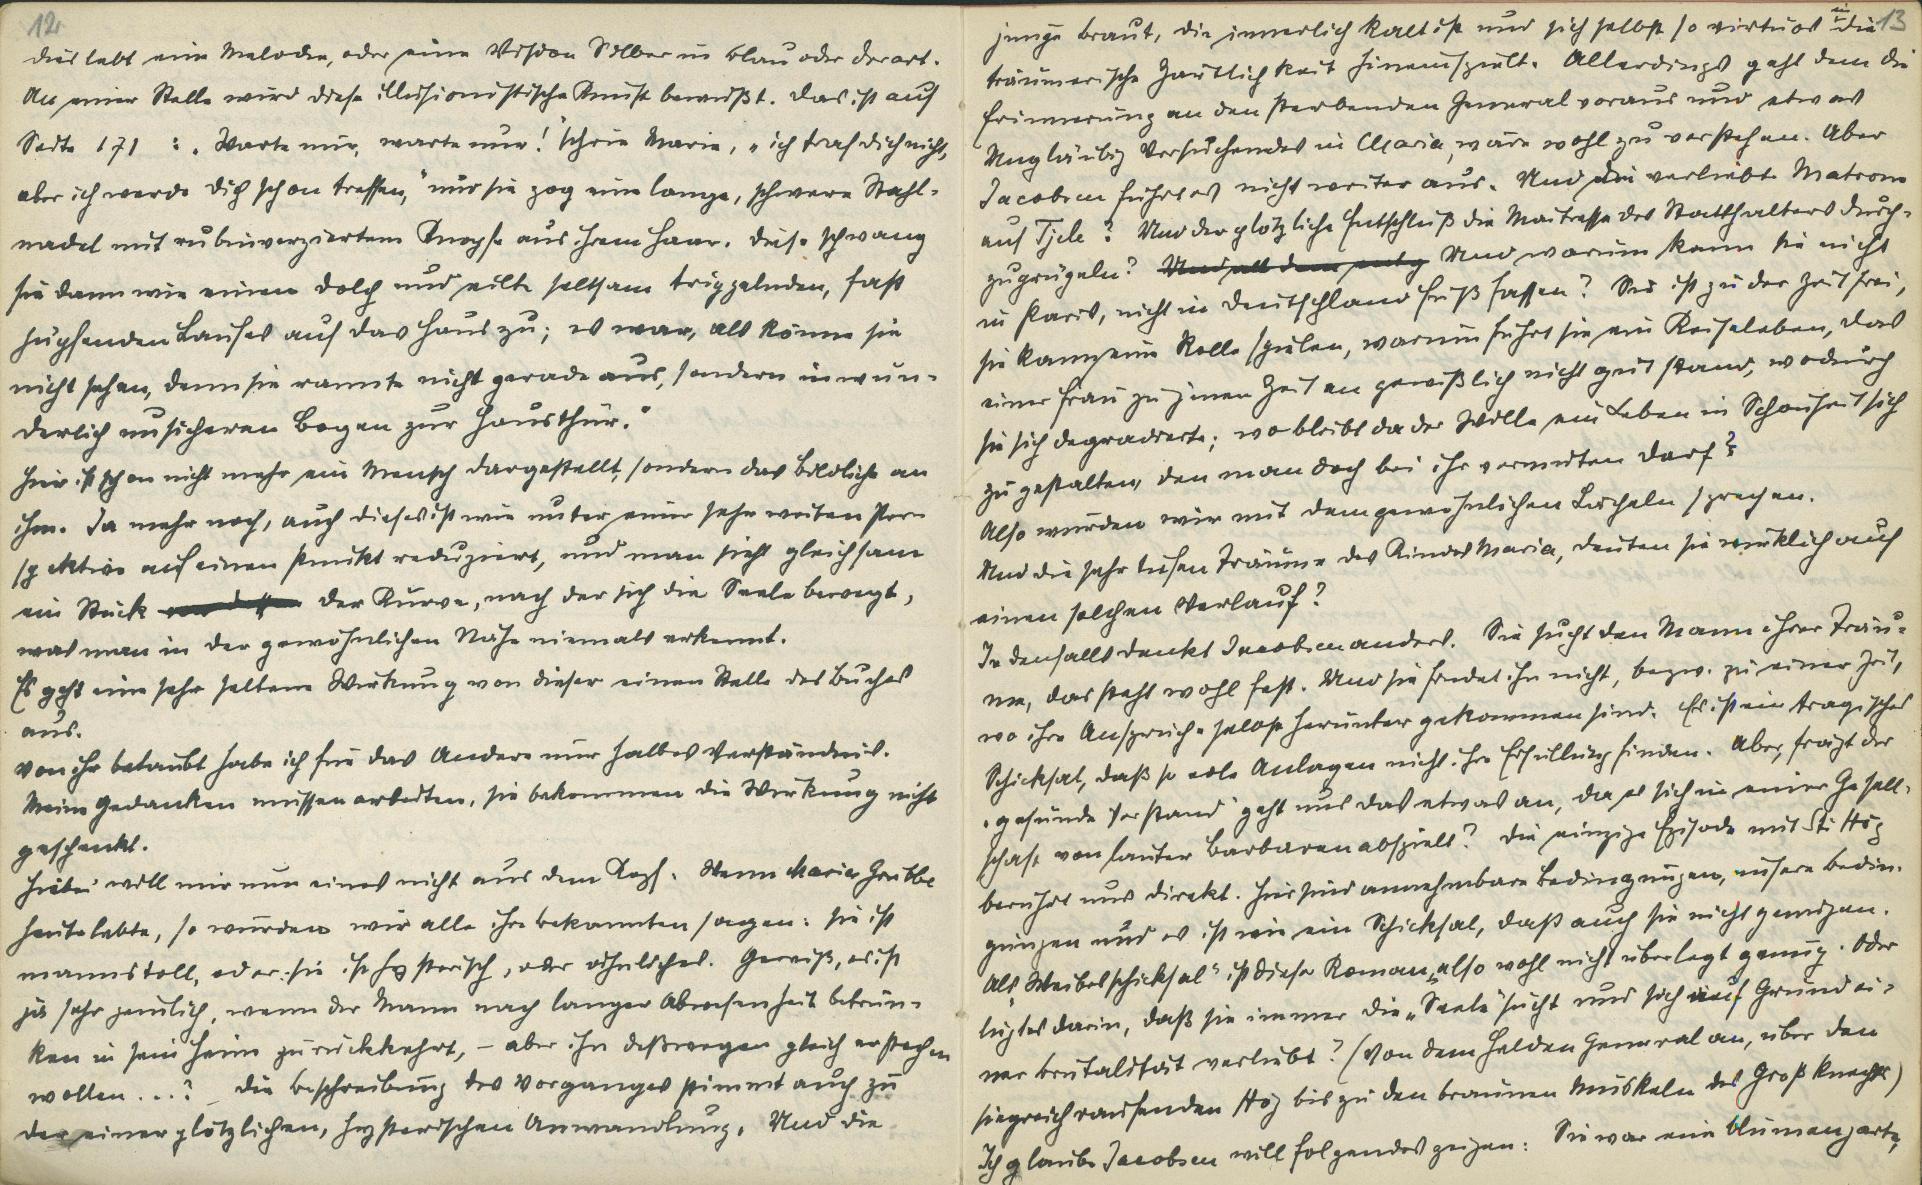 12
dies lebt eine Melodie, oder eine Vision Silber in blau oder derart.
An einer Stelle wird diese illusionistische Kunst bewußt. Das ist auf
Seite 171 : „Warte nur, warte nur!" schrie Marie, „ich traf dich nicht,
aber ich werde dich schon treffen," und sie zog eine lange, schwere Stahl-
nadel mit rubinverziertem Knopfe aus ihrem Haar. Diese schwang
sie dann wie einen Dolch und eilte seltsam trippelnden, fast
hüpfenden Laufes auf das Haus zu; es war, als könne sie
nicht sehen, denn sie rannte nicht gerade aus, sondern in wun-
derlich unsicheren Bogen zur Hausthür."
Hier ist schon nicht mehr ein Mensch dargestellt, sondern das Bildliche an
ihm. Ja mehr noch, auch dieses ist wie unter einer sehr weiten Per-
spektive auf einen Punkt reduziert, und man sieht gleichsam
ein Stück der Kurve, nach der sich die Seele bewegt,
was man in der gewöhnlichen Nähe niemals erkennt.
Es geht eine sehr seltene Wirkung von dieser einen Stelle des Buches
aus.
Von ihr betäubt habe ich für das Andere nur halbes Verständnis.
Meine Gedanken müssen arbeiten, sie bekommen die Wirkung nicht
geschenkt.
Hiebei will mir nun eines nicht aus dem Kopf. Wenn Marie Grubbe
heute lebte, so würden wir alle ihre Bekannten sagen: sie ist
mannstoll, oder: sie ist hysterisch, oder ähnliches. Gewiß, es ist
ja sehr peinlich, wenn der Mann nach langer Abwesenheit betrun-
ken in sein Heim zurückkehrt, – aber ihn deßwegen gleich erstechen
wollen...? Die Beschreibung des Vorganges stimmt auch zu
der einer plötzlichen, hysterischen Anwandlung. Und die
13
junge Braut, die innerlich kalt ist und sich selbst so virtuos in die
träumerische Zärtlichkeit hineinspielt. Allerdings geht dem die
Erinnerung an den sterbenden General voraus und etwas
Ungläubig Versuchendes in Maria, wäre wohl zu verstehen. Aber
Jacobsen führt es nicht weiter aus. Und die verliebte Matrone
auf Tjele? Und der plötzliche Entschluß die Maitresse des Statthalters durch-
zuprügeln? Und warum kann sie nicht
in Paris, nicht in Deutschland Fuß fassen? Sie ist zu der Zeit frei,
sie kann eine Rolle spielen, warum führt sie ein Reiseleben, das
einer Frau zu jenen Zeiten gewißlich nicht gut stand, wodurch
sie sich degradierte; wo bleibt da der Wille ein Leben in Schönheit sich
zu gestalten, den man doch bei ihr vermuten darf?
Also würden wir mit dem gewöhnlichen Lächeln sprechen.
Und die sehr tiefen Träume des Kindes Maria, deuten sie wirklich auf
einen solchen Verlauf?
Jedenfalls denkt Jacobsen anders. Sie sucht den Mann ihrer Träu-
me, das steht wohl fest. Und sie findet ihn nicht, bezw. zu einer Zeit,
wo ihre Ansprüche selbst herunter gekommen sind. Es ist ein tragisches
Schicksal, daß so edle Anlagen nicht ihre Erfüllung finden. Aber, frägt der
„gesunde Verstand" geht uns das etwas an, da es sich in einer Gesell-
schaft von lauter Barbaren abspielt? Die einzige Episode mit Sti Hög
berührt uns direkt. Hier sind annehmbare Bedingungen, unsere Bedin-
gungen und es ist wie ein Schicksal, daß auch sie nicht genügen.
Als „Weibesschicksal" ist dieser Roman also wohl nicht überlegt genug. Oder
liegt es darin, daß sie immer die „Seele" sucht und sich auf Grund ei-
ner Brutalität verliebt? (Von dem Helden General an, über den
siegreich raufenden Hög bis zu den braunen Muskeln des Großknechts)
Ich glaube Jacobsen will folgendes zeigen: Sie war eine blumenzarte,